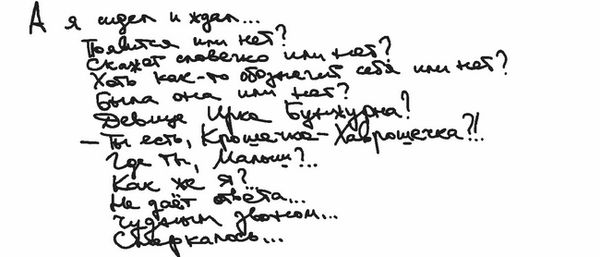 А я сидел и ждал...
Появится или нет?
Скажет словечко или нет?
Хоть как-то обозначит себя или нет?
Была она или нет?
Девица Ирка Бунжурна?
— Ты есть, Крошечка-Хаврошечка?!.
Где ты, Малыш?..
Как же я?..
Не даёт ответа...
Чудным звоном...
Смеркалось...